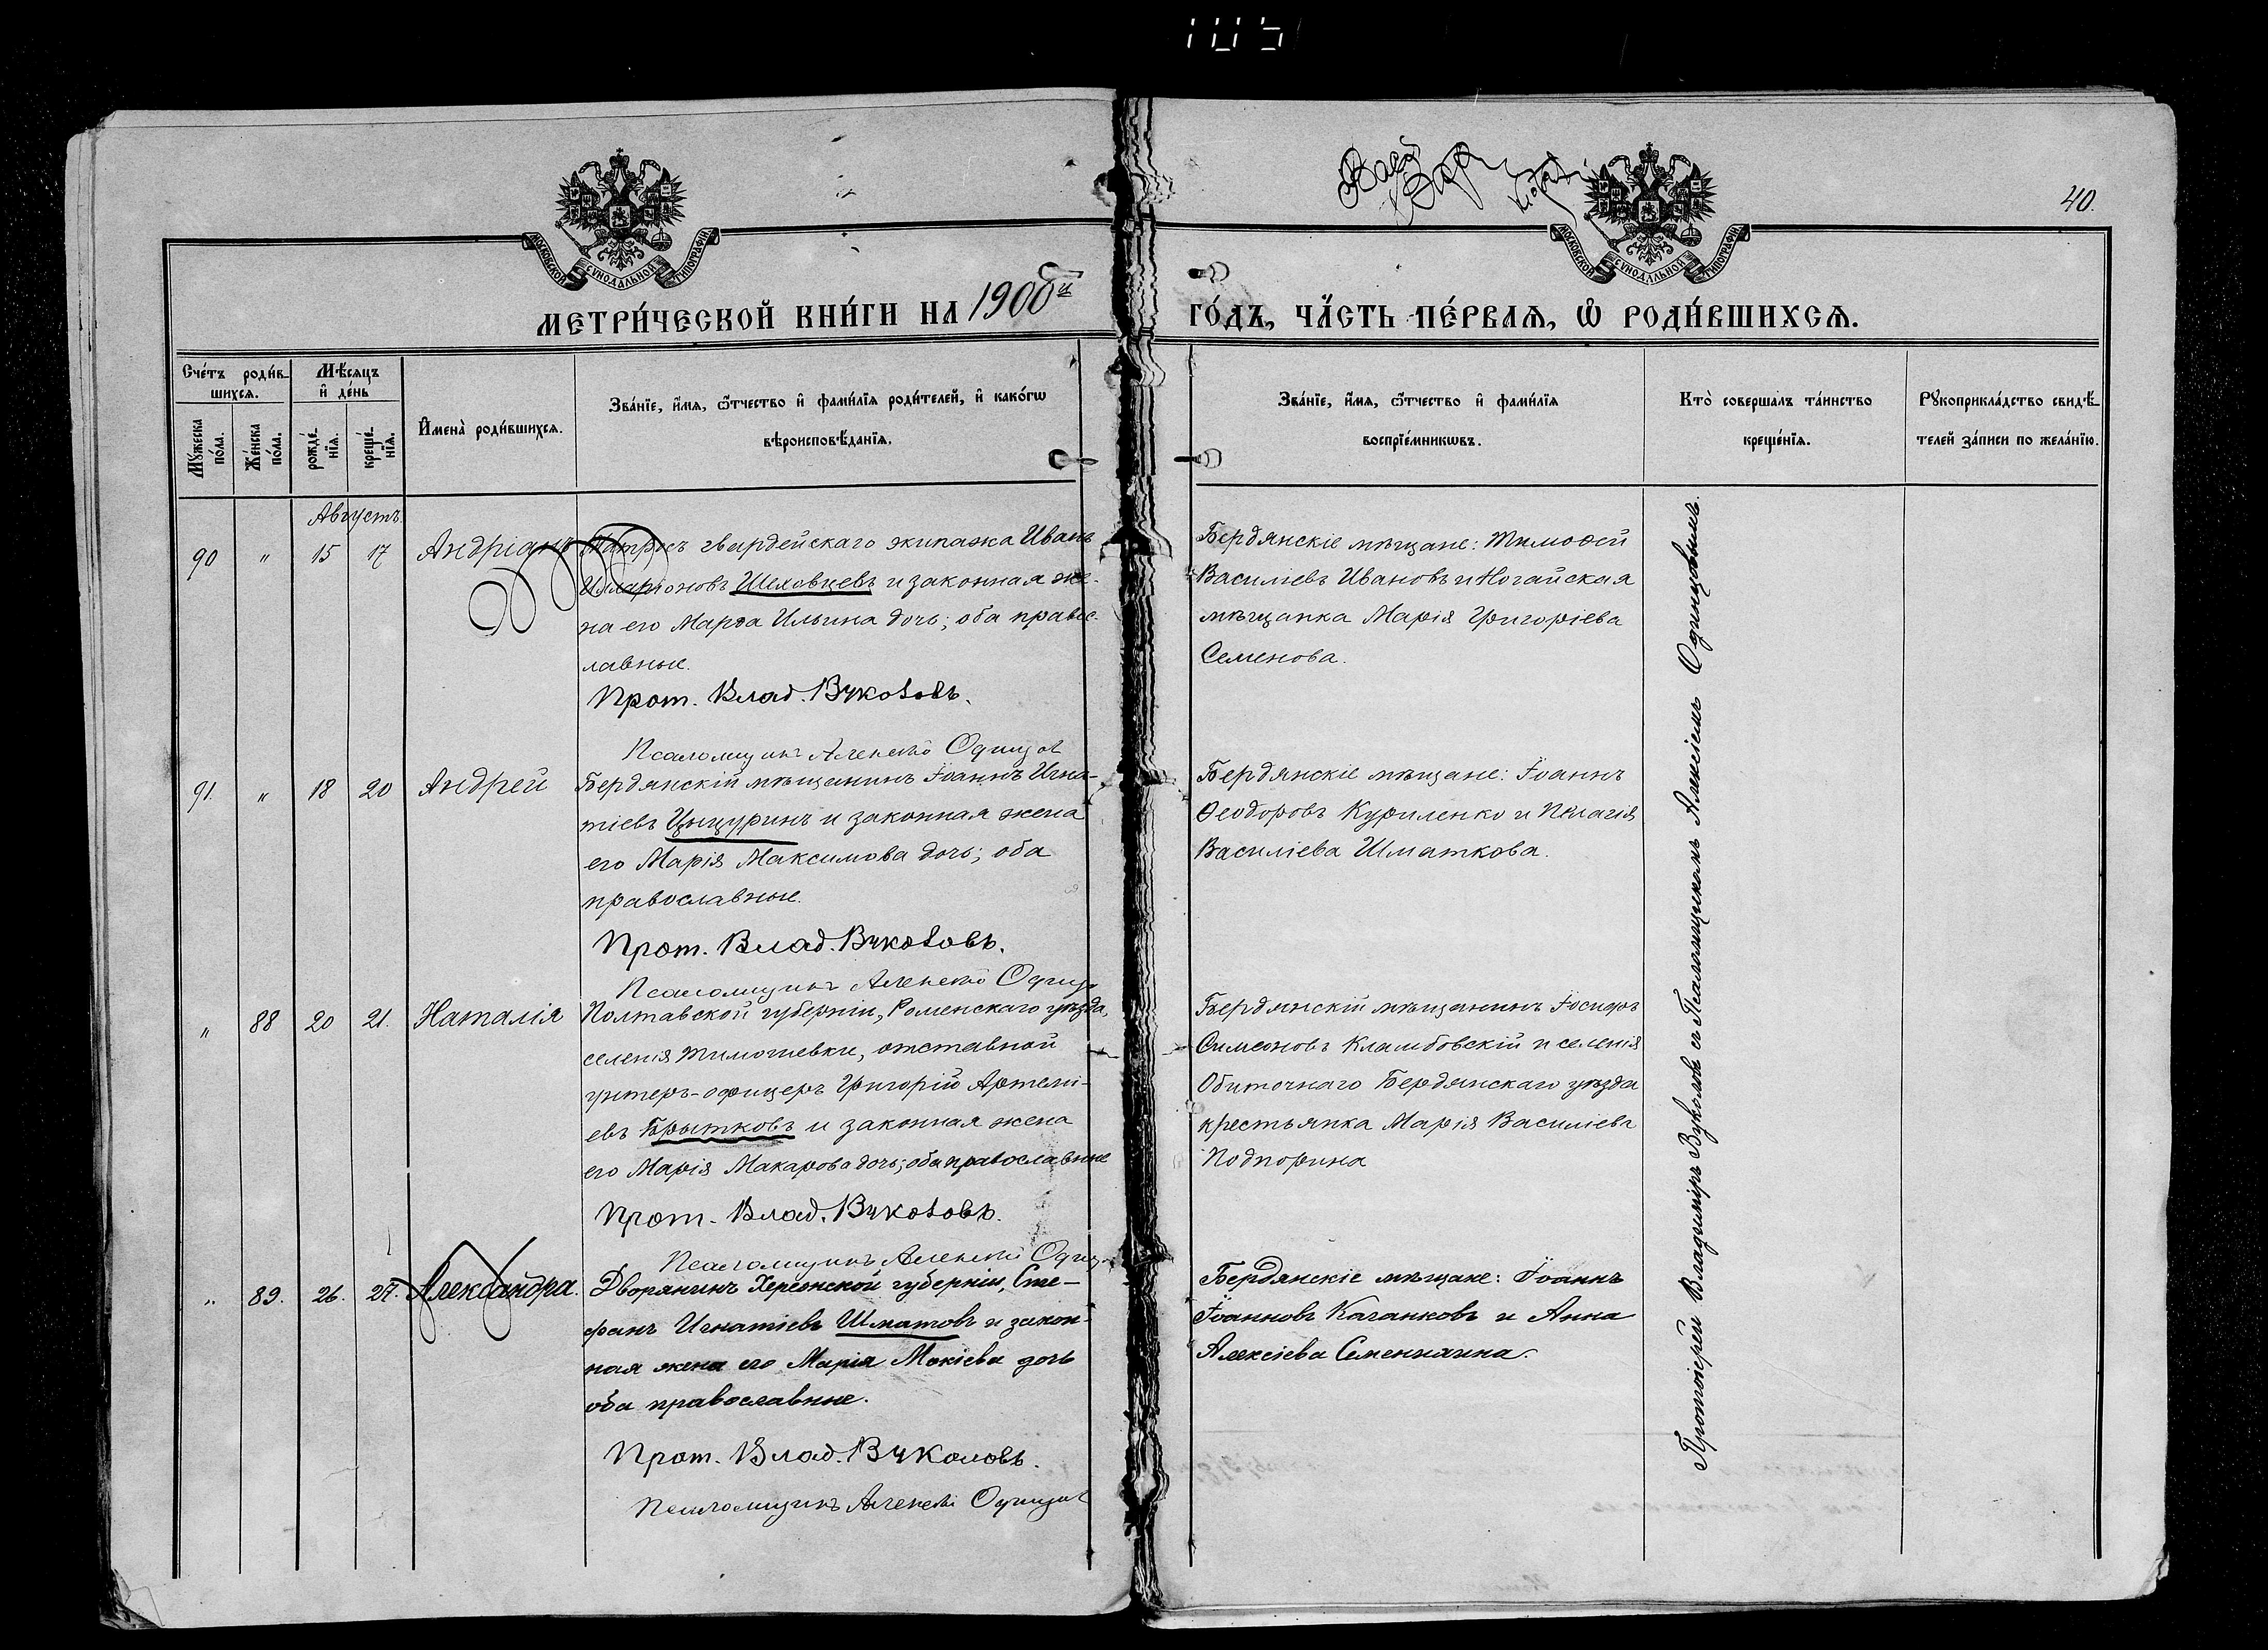 105
40.
МОСКОВСКОЙ СѴНОДАЛЬНОЙ ТИПОГРАФІИ
МОСКОВСКОЙ СѴНОДАЛЬНОЙ ТИПОГРАФІИ
МЕТРИ́ЧЕСКОЙ КНИ́ГИ НА 1900й ГО́ДЪ, ЧА́СТЬ ПЕ́РВАЯ, Ѡ РОДИ́ВШИХСЯ.
Сче́тъ роди́вшихся.
Мꙋ́жеска по́ла.
Же́нска по́ла.
Мѣ́сяцъ и де́нь
рожде́нїя.
креще́нїя.
Имена̀ роди́вшихся.
Зва́нїе, и́мя, ѻ́тчество и фами́лїя роди́телей, и како́гѡ
вѣроисповѣ́данїя.
Зва́нїе, и́мя, ѻ́тчество и фами́лїя
воспрїе́мникѡвъ.
Кто̀ соверша́лъ та́инство
креще́нїя.
Рꙋкоприкла́дство свидѣ́телей за́писи по жела́нїю.
Августъ.
90 " 15 17 Андріанъ
Матросъ гвардейскаго экипажа Иванъ
Иларіоновъ Шеловцевъ и законная же-
на его Марѳа Ильина дочь; оба правос-
лавные.
Прот. Влад. Вуколовъ.
Псаломщикъ Алексѣй
Бердянскіе мѣщане: Тимоѳей
Василіевъ Ивановъ и Ногайская
мѣщанка Марія Григоріева
Семенова.
91. " 18 20 Андрей
Бердянскій мѣщанинъ Іоаннъ Игна-
тіевъ Цыцуринъ и законная жена
его Марія Максимова дочь; оба
православные.
Прот. Влад. Вуколовъ.
Псаломщикъ Алексѣй
Бердянскіе мѣщане: Іоаннъ
Ѳеодоровъ Куриленко и Пелагія
Василіева Шматкова.
" 88 20 21. Наталія
Полтавской губерніи, Роменскаго уѣзда,
селенія Тимошевки, отставной
унтеръ-офицеръ Григорій Артемі-
евъ Брытковъ и законная жена
его Марія Макарова дочь; оба православные
Прот. Влад. Вуколовъ.
Псаломщикъ Алексѣй
Бердянскій мѣщанинъ Іосифъ
Симеоновъ Кламбовскій и селенія
Обиточнаго Бердянскаго уѣзда
крестьянка Марія Василіева
Подпорина
" 89. 26. 27. Александра.
Дворянинъ Херсонской губерніи, Сте-
фанъ Игнатіевъ Шматовъ и закон-
ная жена его Марія Мокіева дочь
оба православные.
Прот. Влад. Вуколовъ.
Псаломщикъ Алексѣй
Бердянскіе мѣщане: Іоаннъ
Іоанновъ Каганковъ и Анна
Алексіева
Протоіерей Владиміръ Вуколовъ съ Псаломщикомъ Алексіемъ Одинцовымъ.